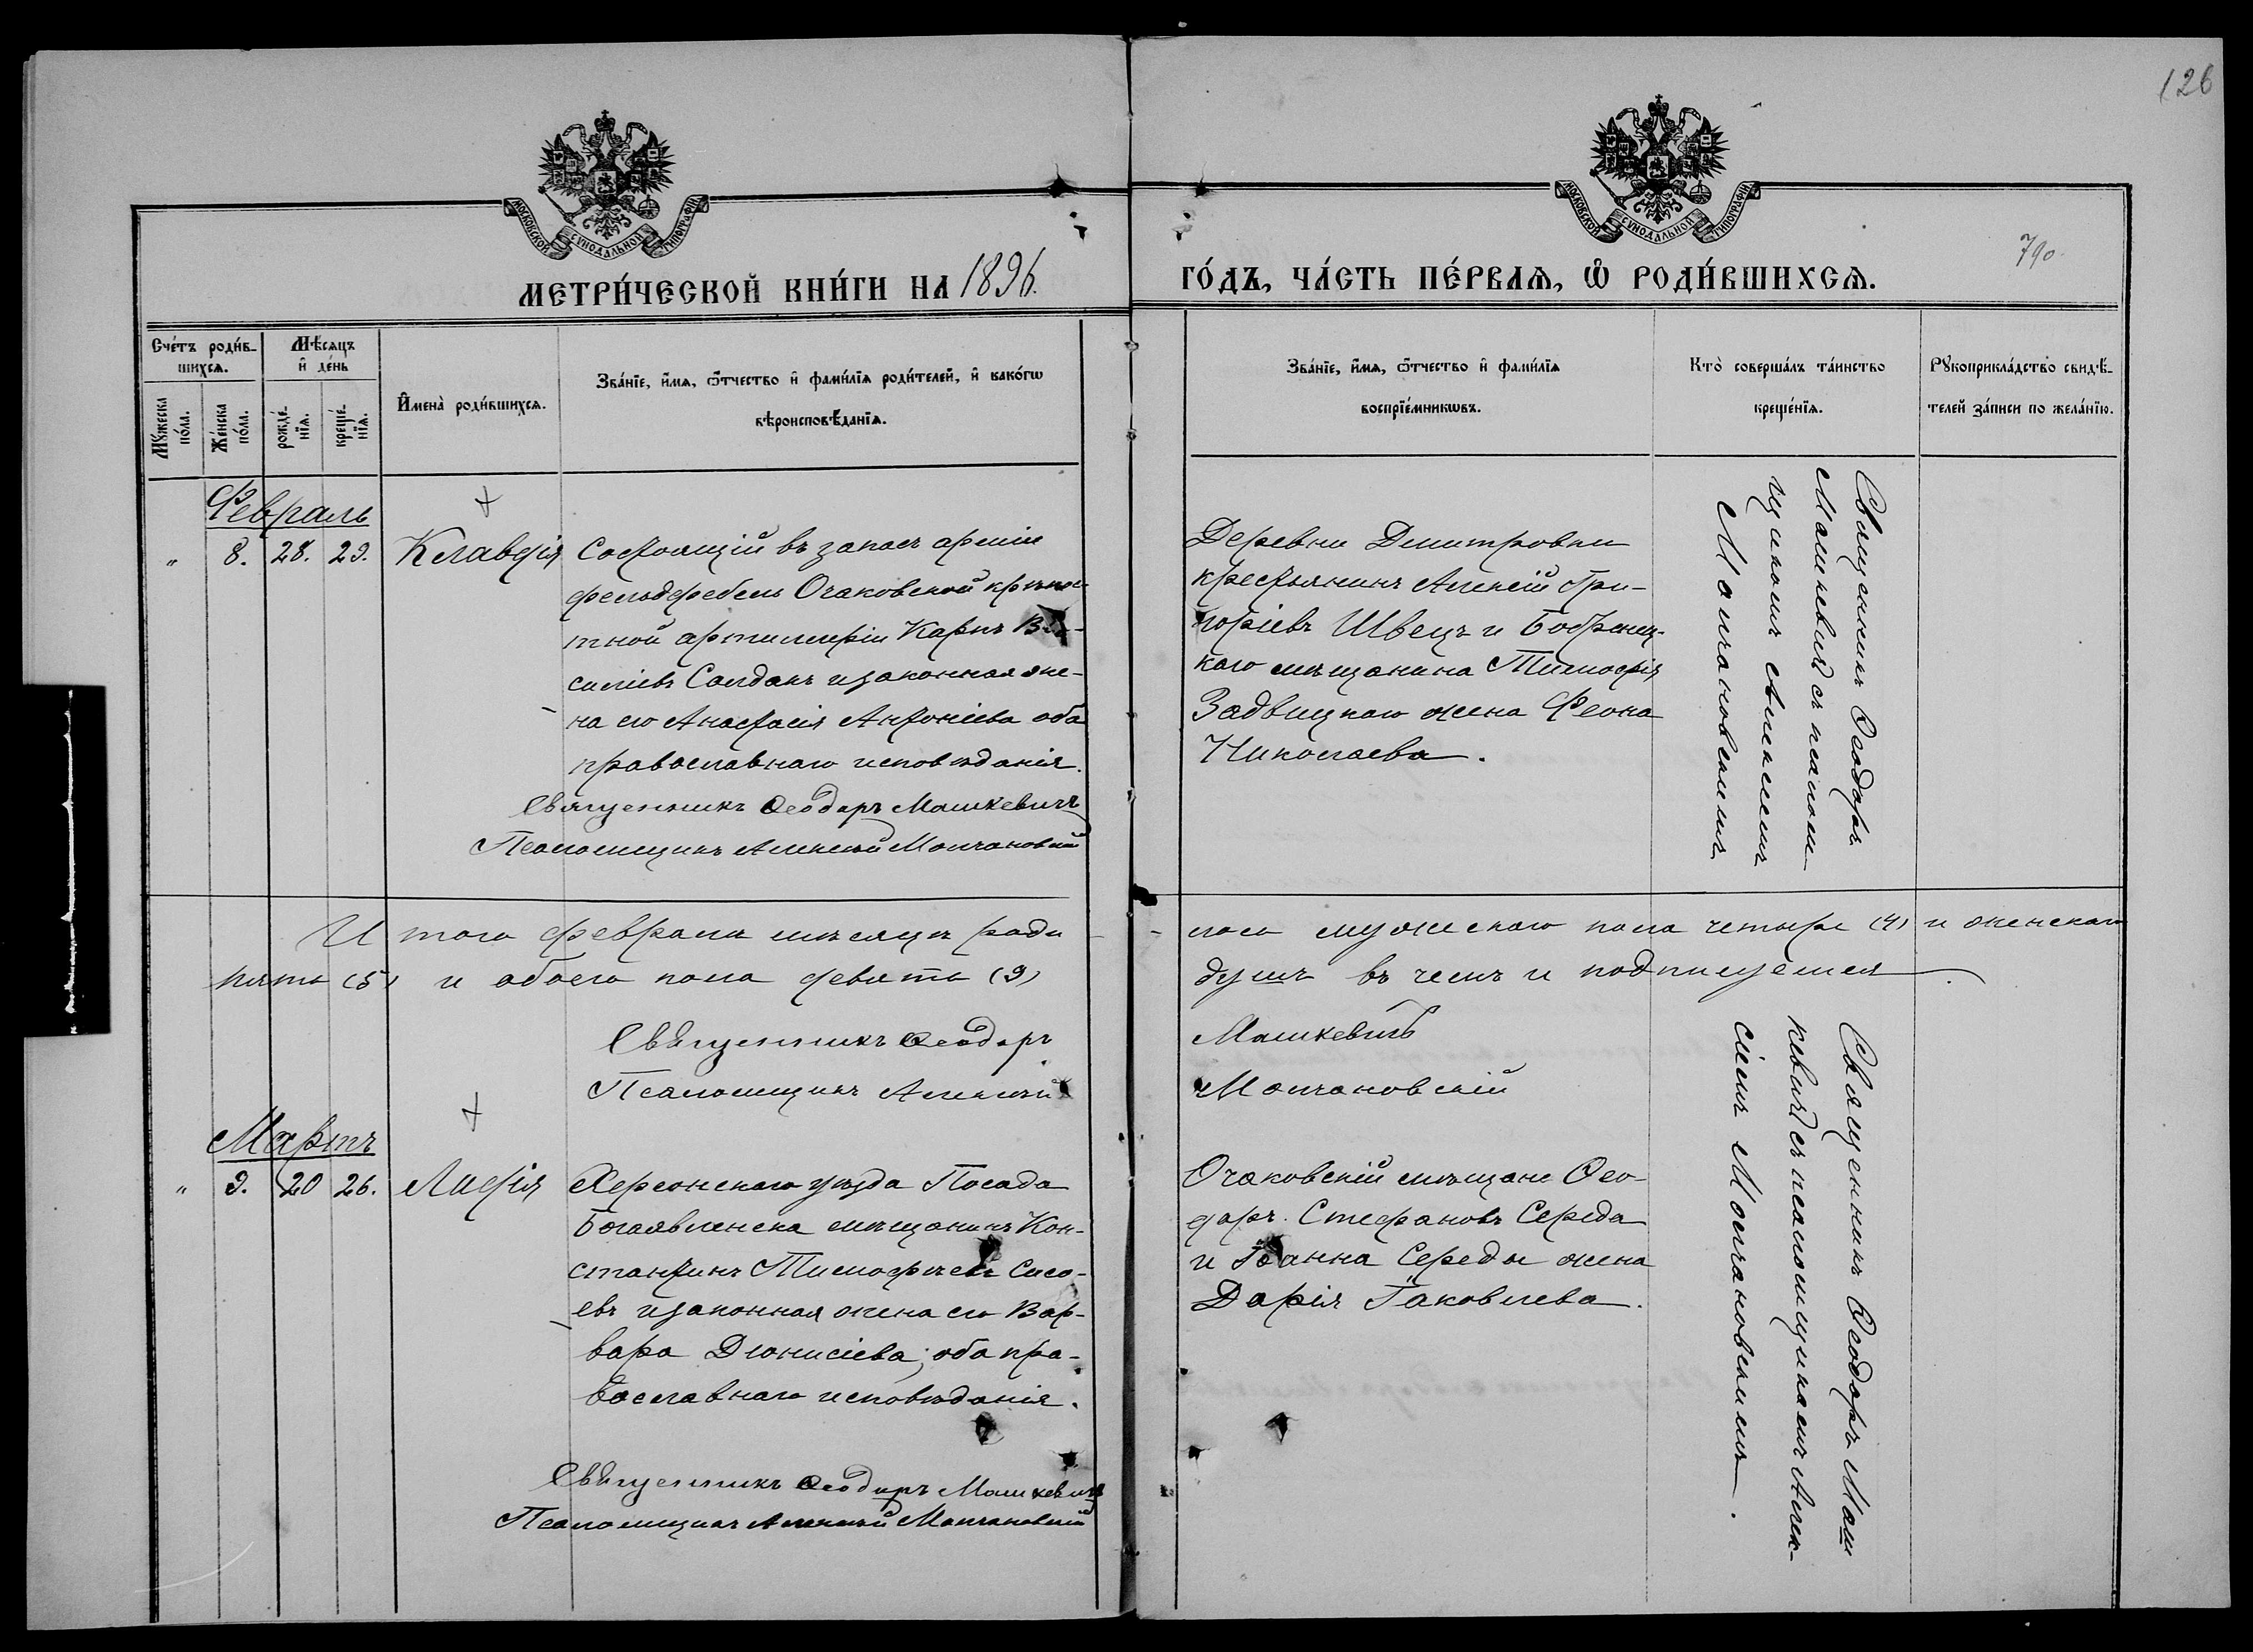 126
МОСКОВСКОЙ СѴНОДАЛЬНОЙ ТИПОГРАФІИ
МОСКОВСКОЙ СѴНОДАЛЬНОЙ ТИПОГРАФІИ
790
МЕТРИ́ЧЕСКОЙ КНИ́ГИ НА 1896.
ГО́ДЪ, ЧА́СТЬ ПЕ́РВАѦ, Ѡ҆ РОДИ́ВШИХСѦ.
Сче́тъ роди́в-
шихсѧ.
Мѣ́сѧцъ
и҆ де́нь
Мꙋ́жеска
по́ла.
Же́нска
по́ла.
рожде́-
нїѧ.
креще́-
нїѧ.
И҆мена̀ роди́вшихсѧ.
Зва́нїе, и҆́мѧ, ѻ҆́тчество и҆ фами́лїѧ роди́телей, и҆ како́гѡ
вѣроисповѣ́данїѧ.
Зва́нїе, и҆́мѧ, ѻ҆́тчество и҆ фами́лїѧ
воспрїе́мникѡвъ.
Кто̀ соверша́лъ та́инство
креще́нїѧ.
Рꙋкоприкла́дство свидѣ́-
телей за́писи по жела́нїю.
Февраль
" 8. 28. 29. Клавдія
Состоящій въ запасѣ арміи
фельдфебель Очаковской крѣпос-
тной артиллеріи Карпъ Ва-
силіевъ Солданъ и законная же-
на его Анастасія Антоніева оба
православнаго исповѣданія.
Священникъ Ѳеодоръ Машкевичъ
Псаломщикъ Алексій Молчановскій
Деревни Димитровки
крестьянинъ Алексій Гри-
горіевъ Швецъ и Бобринец-
каго мѣщанина Тимофія
Задвицкаго жена Феона
Николаева.
Священникъ Ѳеодоръ
Машкевичъ съ псалом-
щикомъ Алексіемъ
Молчановскимъ
Итого февраля мѣсяцѣ роди-
лось мужескаго пола четыре (4) и женскаго
пять (5) и обоего пола девять (9)
душъ въ чемъ и подписуемся.
Священникъ Ѳеодоръ Машкевичъ
Псаломщикъ Алексій Молчановскій
Мартъ
" 9. 20 26. Лидія
Херсонскаго уѣзда Посада
Богоявленска мѣщанинъ Кон-
стантинъ Тимофеевъ Сысо-
евъ и законная жена его Вар-
вара Діонисіева; оба пра-
вославнаго исповѣданія.
Священникъ Ѳеодоръ Машкевичъ
Псаломщикъ Алексій Молчановскій
Очаковскій мѣщане Ѳео-
доръ Стефановъ Середа
и Іоанна Середы жена
Дарія Іаковлева.
Священникъ Ѳеодоръ Маш
кевичъ съ псаломщикомъ Алек-
сіемъ Молчановскимъ.